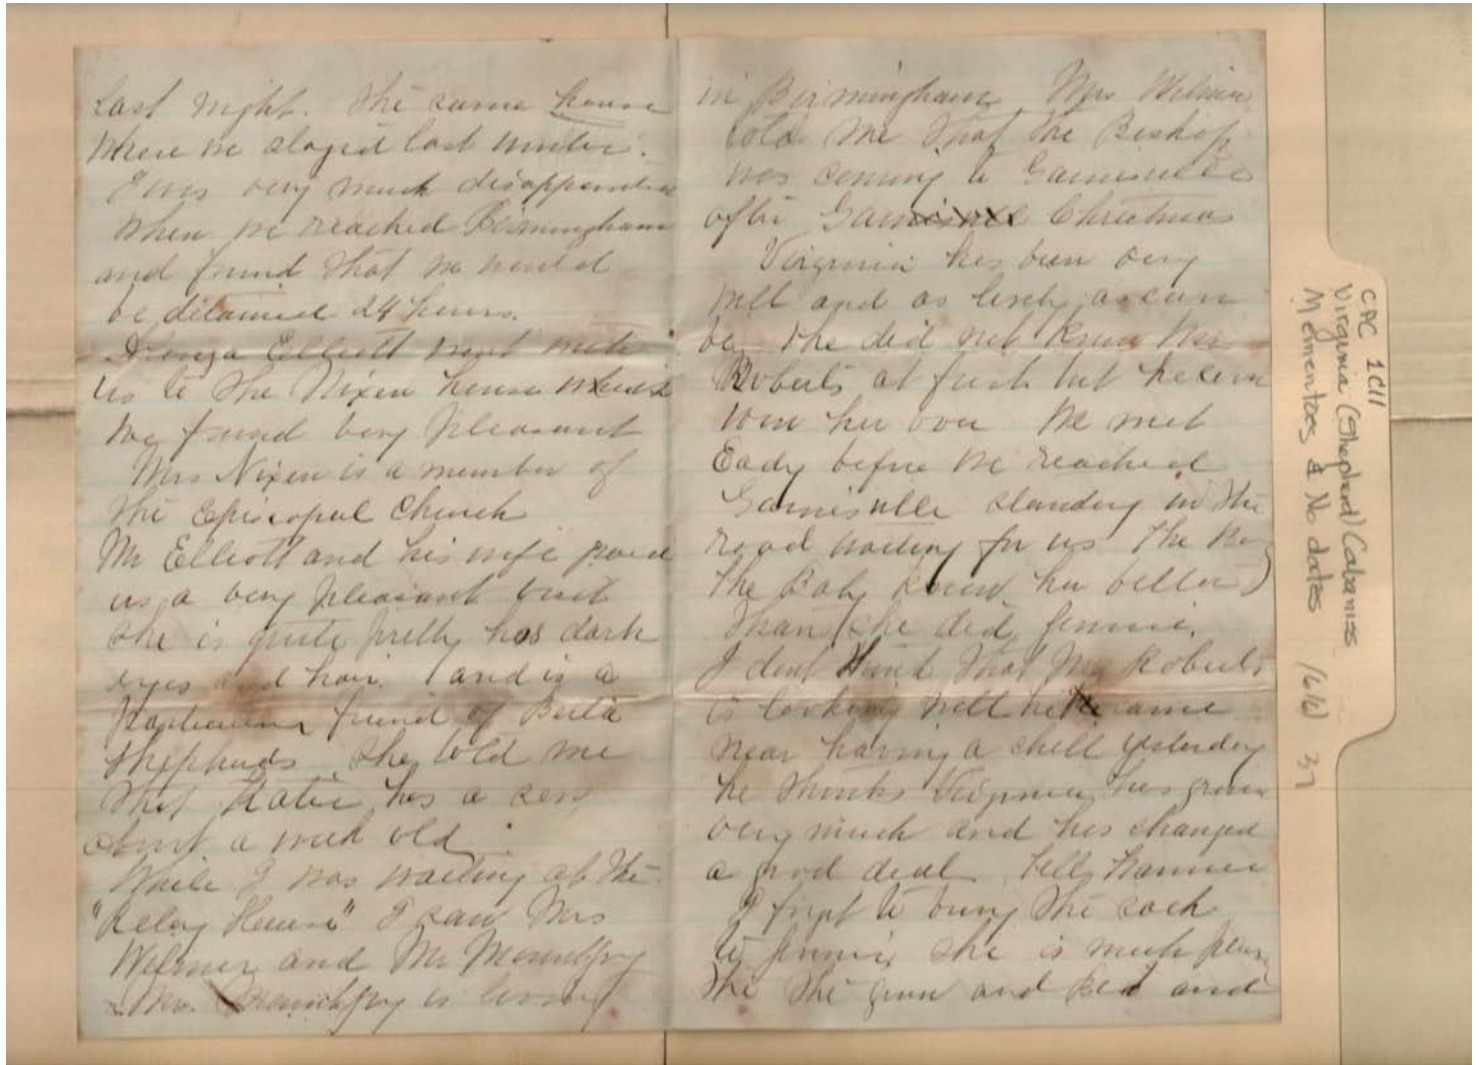 last night. The same house
where we stayed last winter.
I was very much disappointed
when we reached Birmingham
and found that we would
be detained 24 hours.
Elliott went with
us to the Nixen house which
we found very pleasant
Mrs Nixen is a member of
the Episcopal Church
Mr Elliott and his wife paid
us a very pleasant visit
she is quite pretty has dark
eyes and hair and is a
particular friend of Berta
Shepherds she told me
that Katie has a son
about a week old.
While I was waiting at the
"Relay House" I saw Mrs
Wilmer and Mr
Mr. is living
in Birmingham Mrs Wilmer
told me that the Bishop
was coming to Gainesville
after Christmas
Virginia has been very
well and as lively as can
be, she did not know Mr
Roberts at first but he soon
won her over We met
Eady before we reached
Gainesville standing in the
road waiting for us The
the Baby knew her better
than she did Jennie.
I dont think that Mr Roberts
is looking well he came
near having a chill yesterday
he thinks Virginia has grown
very much and has changed
a good deal. Tell
I forgot to bring the sack
to Jennie, she is much
the and and
CPC 1C111
Virginia (Shepherd) Cabaniss
Mementoes & No dates 16(6) 37